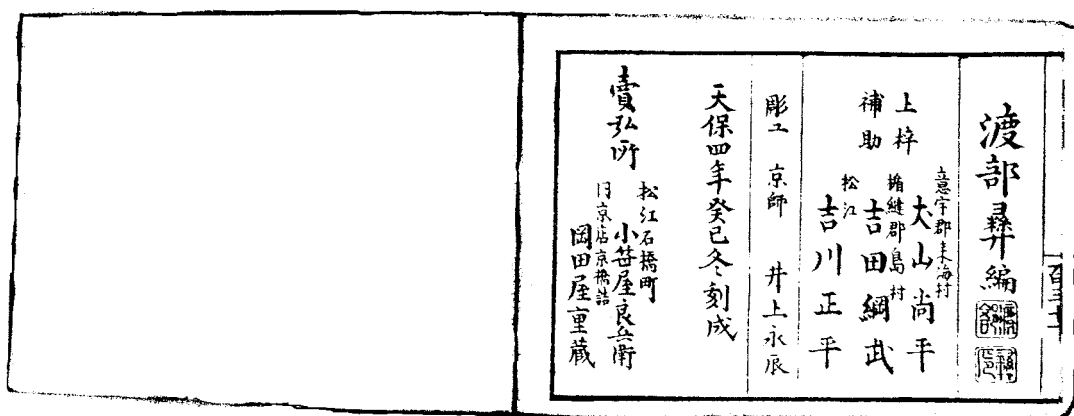 渡部彝編
上梓
補助
意宇郡来海村
大山尚平
楯縫郡島村
吉田綱武
松江
吉川正平
彫工 京師 井上永辰
天保四年癸巳冬刻成
賣弘所
松江石橋町
小笹屋良兵衛
同京店京橋詰
岡田屋重蔵